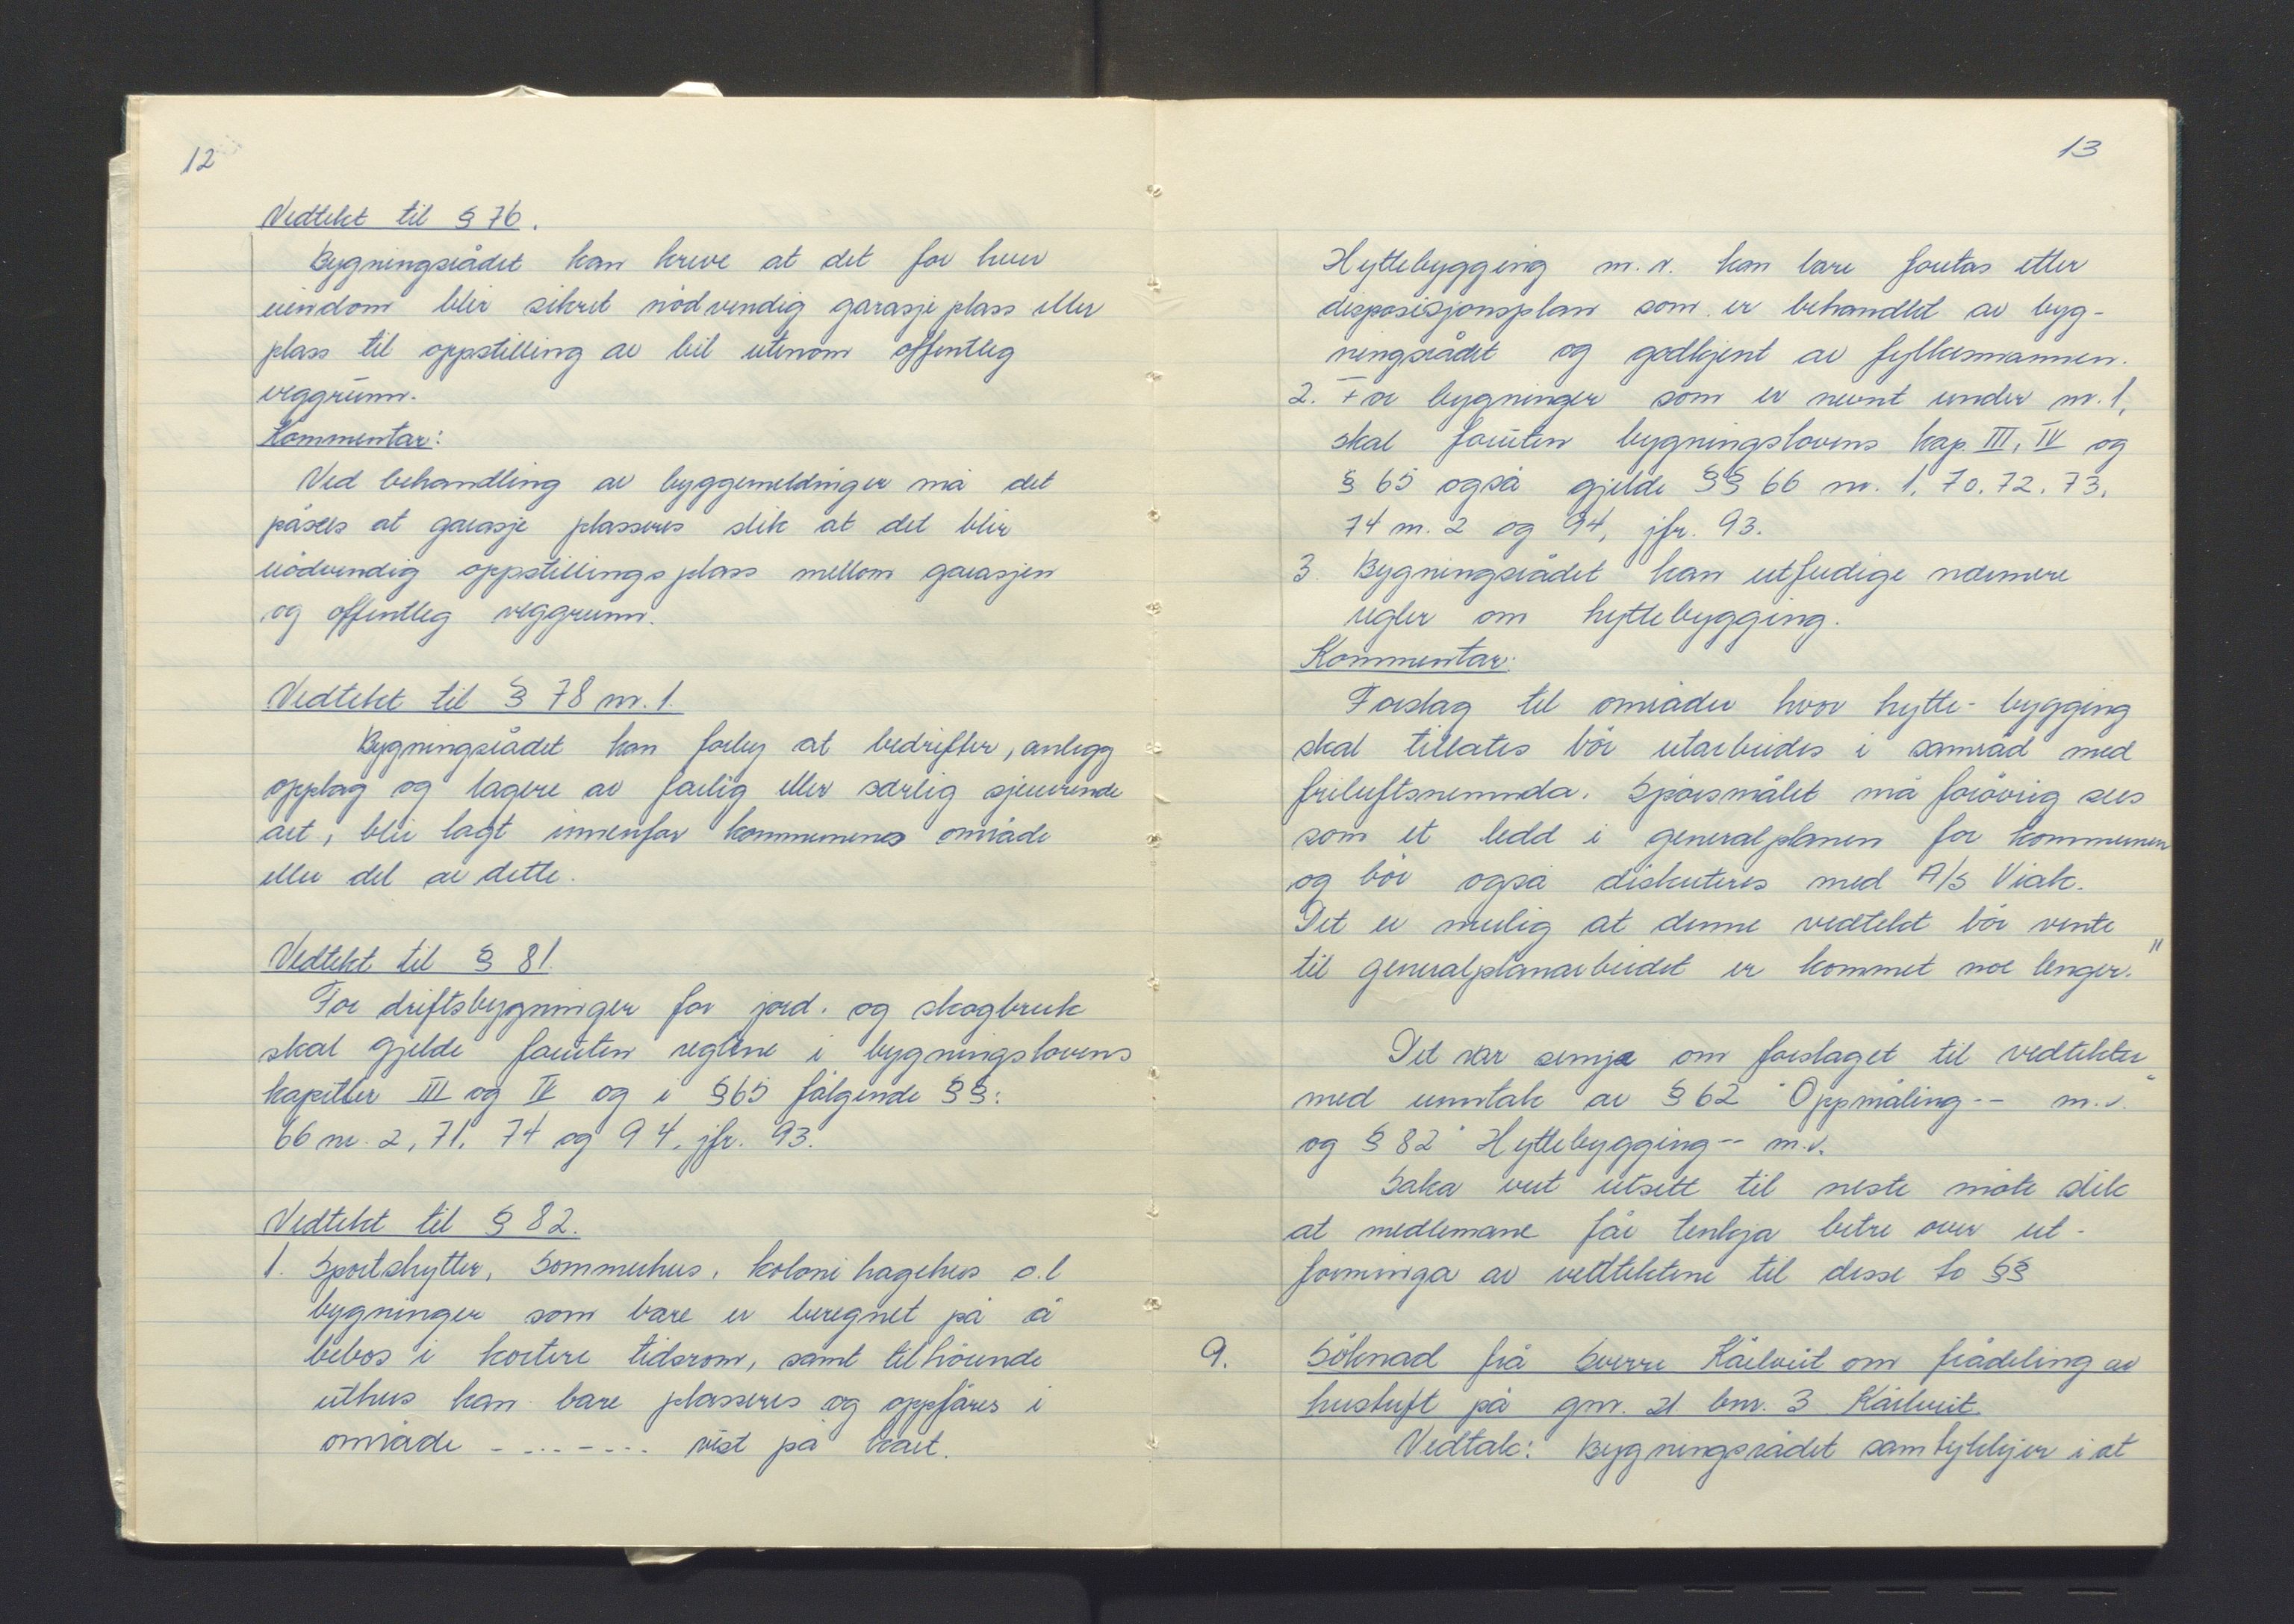 12
Vedtekt til § 76.
Bygningsrådet kan kreve at det for hver
eiendom blir sikret nödvendig garasjeplass eller
plass til oppstilling av bil utenom offentleg
veggrunn.
Kommentar:
Ved behandling av byggemeldinger må det
påsees at garasje plasseres slik at det blir
nödvendig oppstillingsplass mellom garasjen
og offentleg veggrunn.
Vedtekt til § 78 nr. 1.
Bygningsrådet kan forby at bedrifter, anlegg
opplag og lagere av farlig eller særlig sjenerende
art, blir lagt innenfor kommunens område
eller del av dette.
Vedtekt til § 81.
For driftsbygninger for jord. og skogbruk
skal gjelde foruten reglene i bygningslovens
kapitler III og IV og i § 65 fölgende §§:
66 nr. 2, 71, 74 og 94, jfr. 93.
Vedtekt til § 82.
1. Sportshytter, Sommerhus, kolonihagehus o.l
bygninger som bare er beregnet på å
bebos i kortere tidsrom, samt tilhörende
uthus kan bare plasseres og oppföres i
område - . . . - . . . vist på kart.
13
Hyttebygging m.v. kan bare foretas etter
disposisjonsplan som er behandlet av byg-
ningsrådet og godkjent av fylkesmannen.
2. For bygninger som er nevnt under nr. 1,
skal foruten bygningslovens kap. III, IV og
§ 65 også gjelde §§ 66 nr. 1, 70, 72, 73,
74 nr. 2 og 94, jfr. 93.
3. Bygningsrådet kan utferdige nærmere
regler om hyttebygging.
Kommentar:
Forslag til områder hvor hytte-bygging
skal tillates bör utarbeides i samråd med
friluftsnemnda. Spörsmålet må forövrig sees
som et ledd i generalplanen for kommunen
og bör også diskuteres med A/S Viak.
Det er mulig at denne vedtekt bör vente
til generalplanarbeidet er kommet noe lenger."
Det var semje om forslaget til vedtekter
med unntak av § 62 "Oppmåling -- m.v."
og § 82 "Hyttebygging -- m.v.
Saka vert utsett til neste möte slik
at medlemane får tenkja betre over ut-
forminga av vedtektene til desse to §§
9. Söknad frå Sverre Kårlveit om frådeling av
hustuft på gnr. 21 bnr. 3 Kårlveit
Vedtak: Bygningsrådet samtykkjer i at